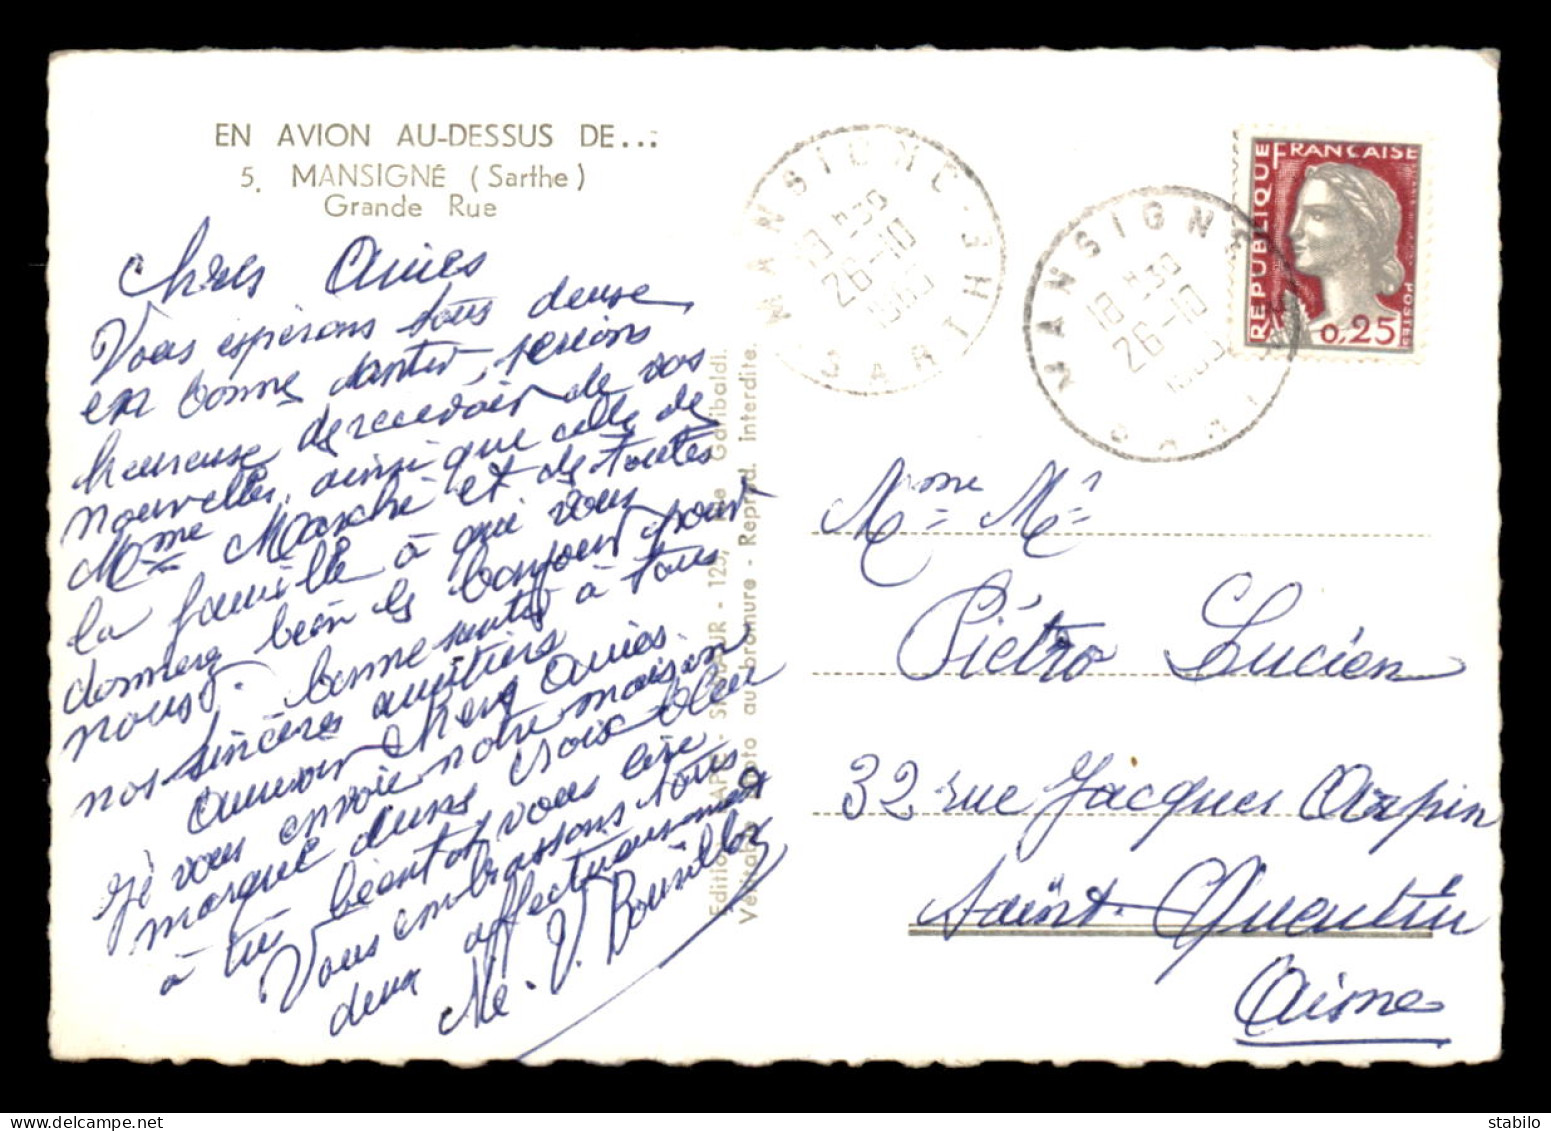 EN AVION AU-DESSUS DE...
5. MANSIGNÉ (Sarthe)
Grande Rue
Chers Amies
Vous espérons tous deuse
en bonne santer, serions
heureuse de recevoir de vos
nouvelles, ainsi que celle de
Mme Marché et de toutes
la famille à qui vous
donnerez bien le bonjour pour
nous. bonne santer à tous
nos sincères amitiers
aurevoir cherz Amies.
Je vous envoie notre maison
marqué dune croix bleu
à bientot vous lire
Vous embrassons tous
deux affectueusement
Me. V. Bouvillon
Editions LAPIE - ST-MAUR - 125, Rue Garibaldi.
Véritable photo au bromure - Reprod. Interdite.
MANSIGNE SARTHE
18 H30
26-10
MANSIGNE
18 H30
26-10
REPUBLIQUE FRANÇAISE
POSTES
0,25
Mme Mr
Piétro Lucien
32 rue Jacques Crépin
Saint-Quentin
Aisne
www.stabilo-cards.com